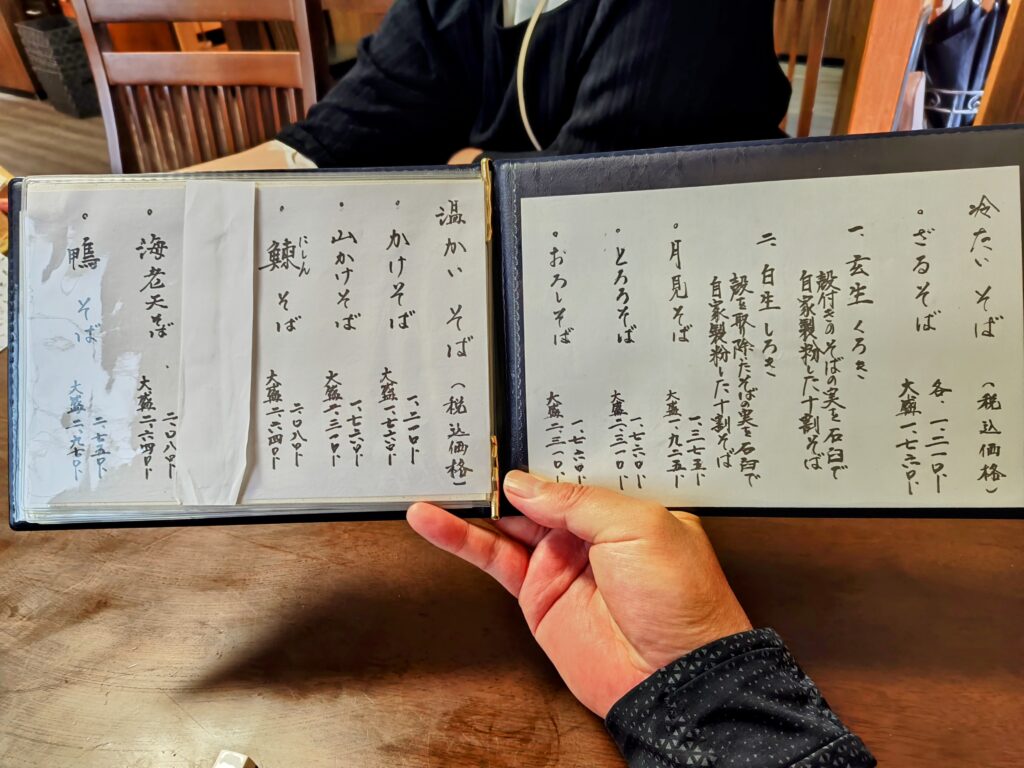 冷たいそば（税込価格）
。ざるそば 各一、二一〇円
大盛一、七六〇円
一、玄生 くろき
殻付きのそばの実を石臼で
自家製粉した十割そば
二、白生 しろき
殻を取除たそばの実を石臼で
自家製粉した十割そば
。月見そば 一、三七五円
大盛一、九二五円
。とろろそば 一、七六〇円
大盛二、三一〇円
。おろしそば 一、七六〇円
大盛二、三一〇円
温かいそば（税込価格）
。かけそば 一、二一〇円
大盛一、七六〇円
。山かけそば 一、七六〇円
大盛二、三一〇円
。鰊そば 二、〇八〇円
にしん
大盛二、六四〇円
。海老天そば 二、〇八〇円
大盛二、六四〇円
。鴨そば 二、七五〇円
大盛二、九七〇円